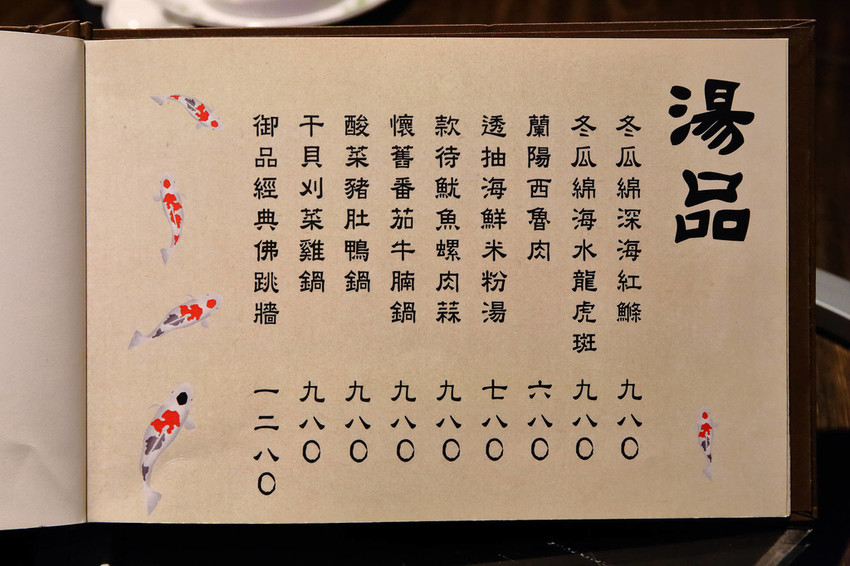 湯品
冬瓜綿深海紅鰷 九八〇
冬瓜綿海水龍虎斑 九八〇
蘭陽西魯肉 六八〇
透抽海鮮米粉湯 七八〇
款待魷魚螺肉蒜 九八〇
懷舊番茄牛腩鍋 九八〇
酸菜豬肚鴨鍋 九八〇
干貝刈菜雞鍋 九八〇
御品經典佛跳牆 一二八〇